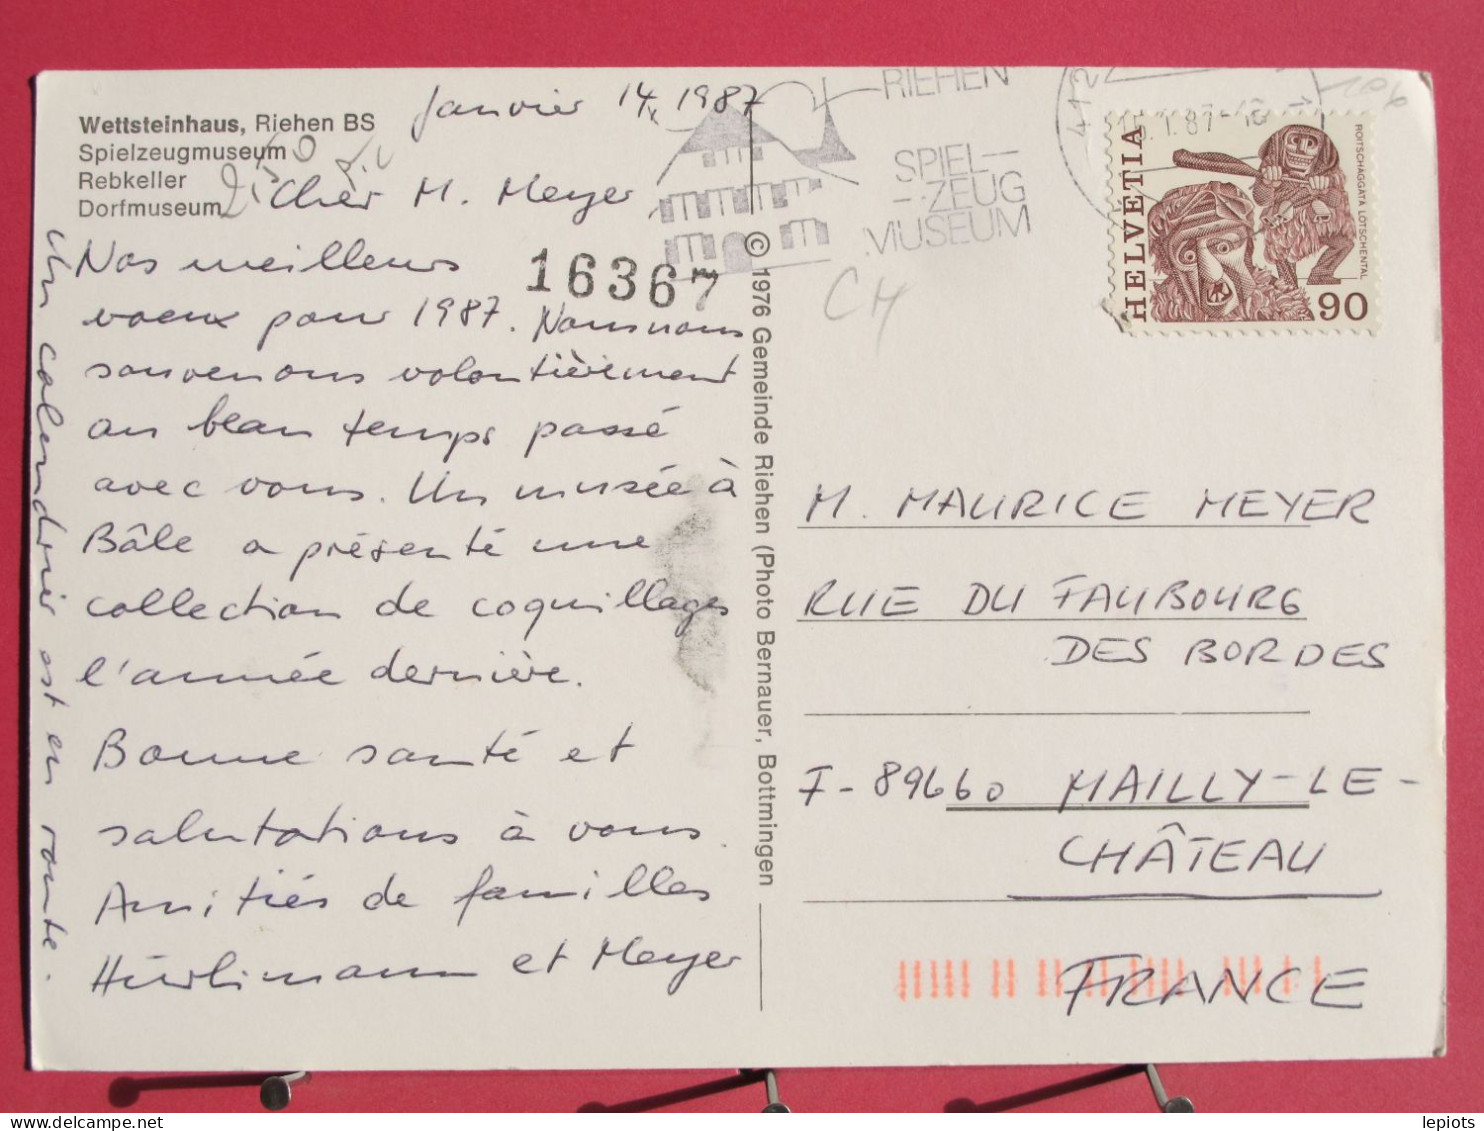 Wettsteinhaus, Riehen BS
Spielzeugmuseum
Rebkeller
Dorfmuseum
Janvier 14, 1987
Cher M. Meyer
Nos meilleurs
voeux pour 1987. Nous nous
souvenons volontièrement
au beau temps passé
avec vous. Un musée à
Bâle a présenté une
collection de coquillages
l'année dernière.
Bonne santé et
salutations à vous.
Amitiés de familles
Hürlimann et Meyer
Un calendrier est en route.
16367
© 1976 Gemeinde Riehen (Photo Bernauer, Bottmingen
RIEHEN
SPIEL-
-ZEUG
MUSEUM
412
15.1.87
CH
HELVETIA
ROITSCHÄGGÄTA LÖTSCHENTAL
90
M. MAURICE MEYER
RUE DU FAUBOURG
DES BORDES
F-89660 MAILLY-LE-
CHÂTEAU
FRANCE
lepiots